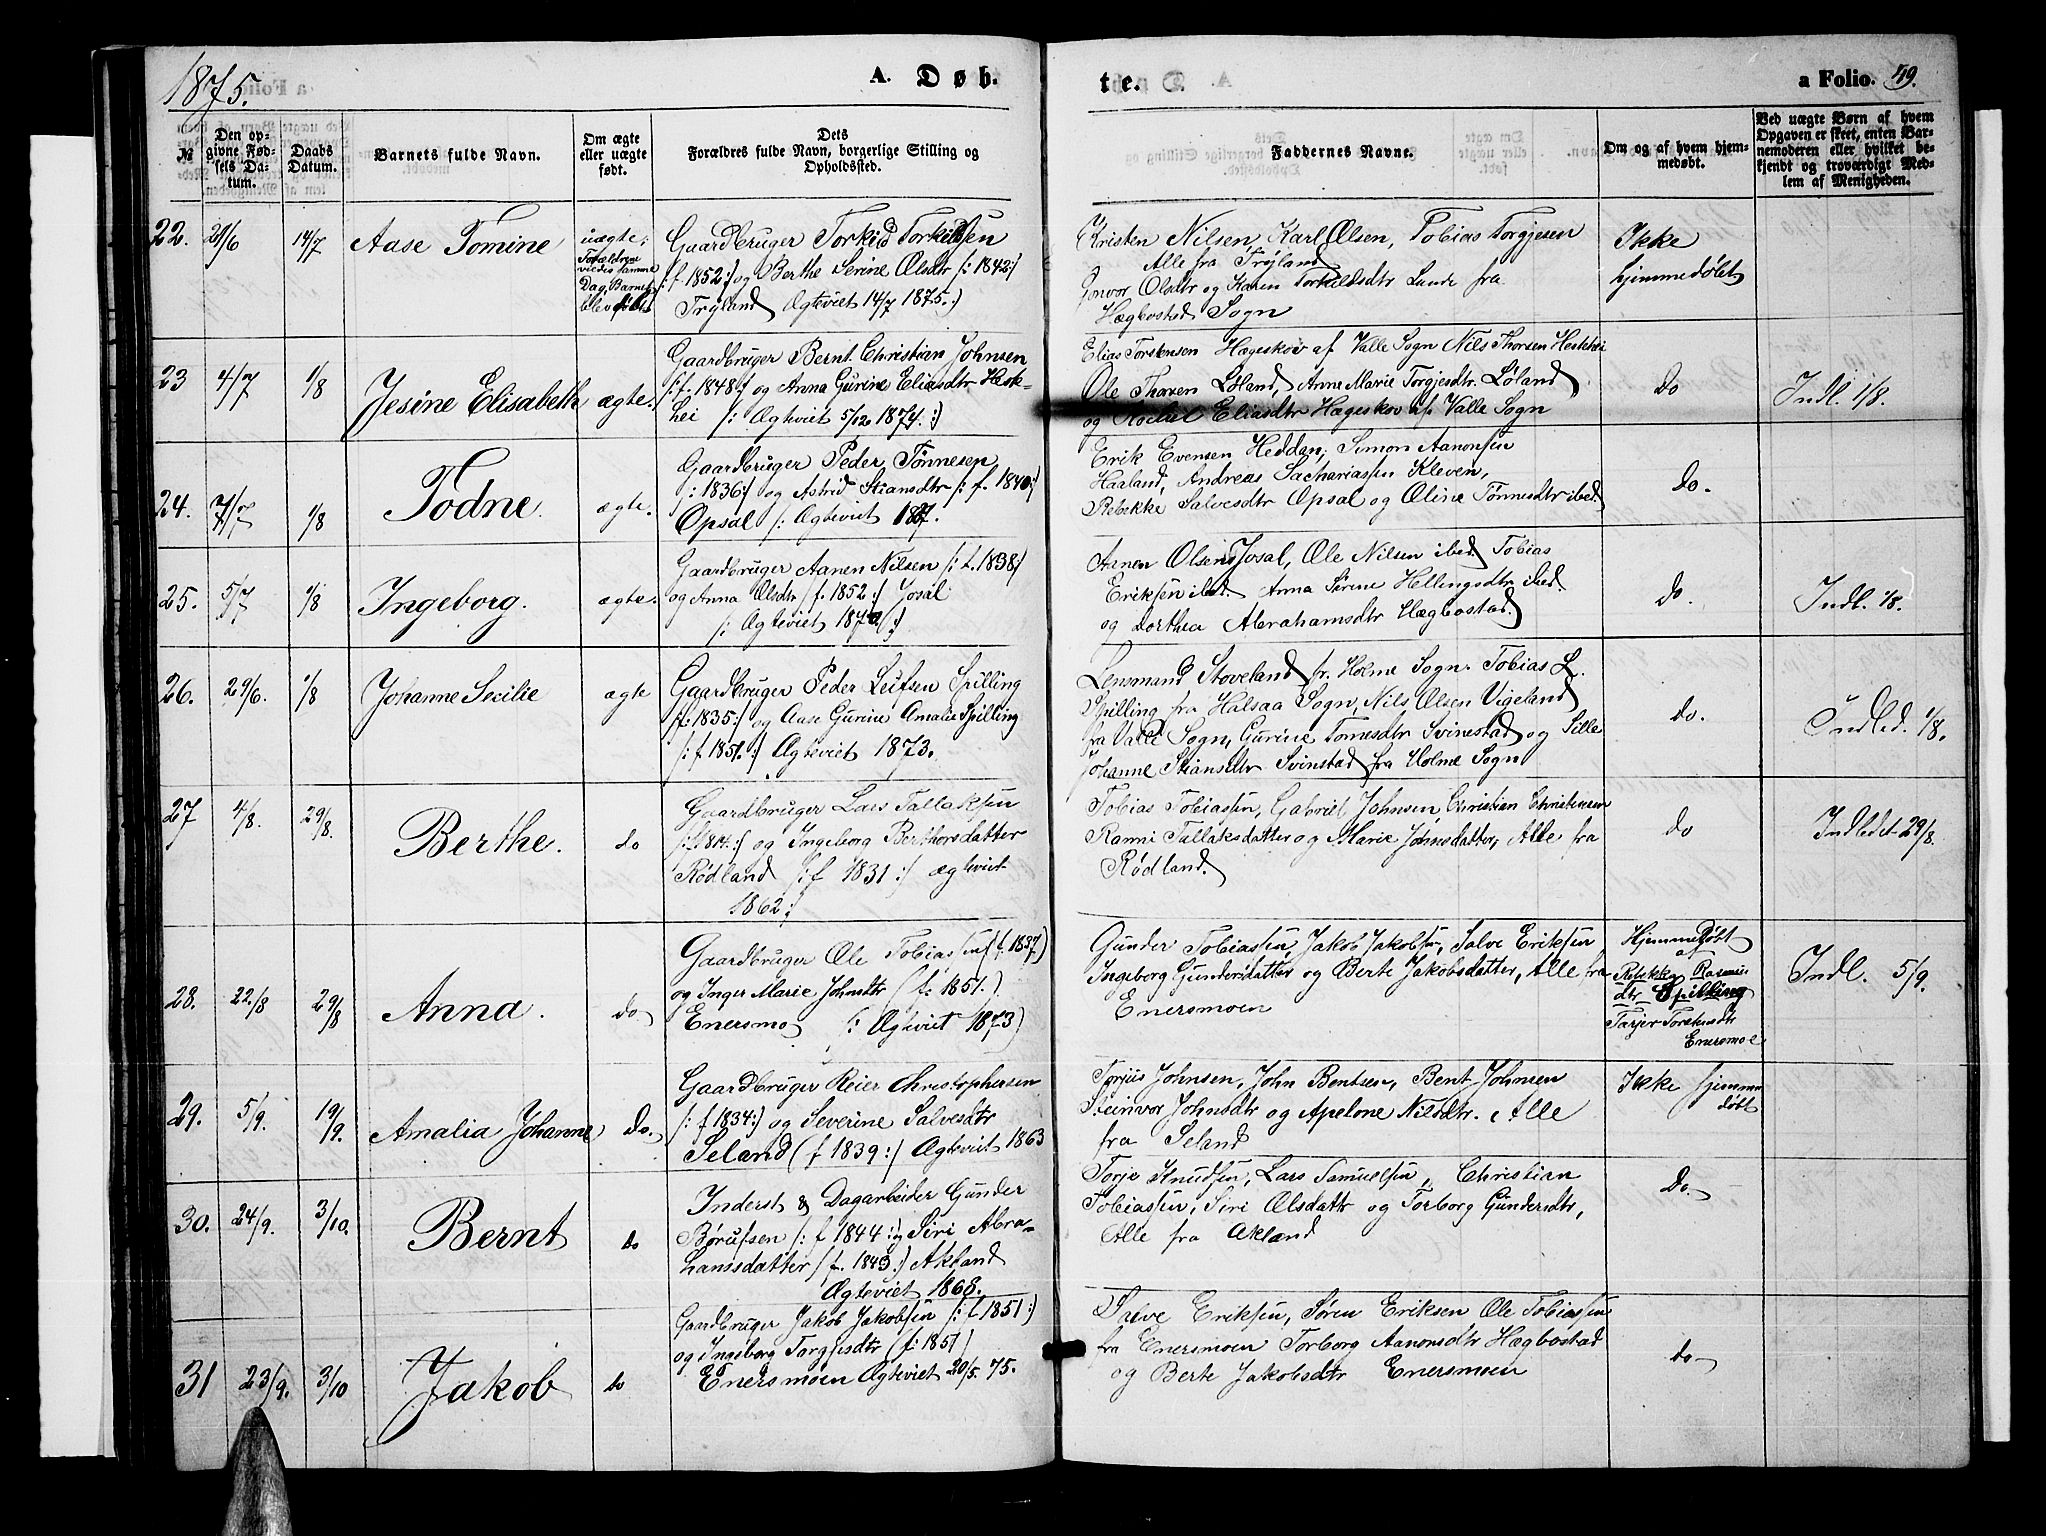 1875.
A. Døb.
№
Den opgivne Fødsels Datum.
Daabs Datum.
Barnets fulde Navn.
Om ægte eller uægte født.
Dets
Forældres fulde Navn, borgerlige Stilling og
Opholdssted.
22. 21/6 14/7 Aase Tomine
uægte,
Forældrene
viedes samme
Dag, Barnet
blev døbt
Gaardbruger Torkild Torkildsen
f 1852:/ og Berthe Serine Olsdtr /: 1842:/
Tryland Ægteviet 14/7 1875.:)
23 4/7 1/8 Jesine Elisabeth ægte.
Gaardbruger Bernt Christian Johnsen
/: f. 1848:/ og Anna Gurine Eliasdtr Hesk-
hei /: Ægteviet 5/12 1874.:)
24. 7/7 1/8 Todne ægte.
Gaardbruger Peder Tønnesen
/: 1836:/ og Astrid Stiansdtr /: f. 1840:/
Opsal /: Ægteviet
25. 5/7 1/8 Ingeborg. ægte.
Gaardbruger Aanen Nilsen /: f. 1838:/
og Anna Olsdtr /f. 1852:/ Josal
/: Ægteviet
26. 29/6. 1/8 Johanne Secilie ægte
Gaardbruger Peder Leifsen Spilling
/f: 1835:/ og Aase Gurine Amalie Spilling
/: f 1851.:/ Ægteviet 1873.
27 4/8. 29/8. Berthe. do
Gaardbruger Lars Tallaksen
/: 1814:/ og Ingeborg Berthorsdatter
Rødland /: f 1831:/ ægteviet
1862:/
28. 22/8 29/8 Anna. do
Gaardbruger Ole Tobiassen (f. 1837)
og Inger Marie Johnsdtr (f: 1851.)
Enersmo /: Ægteviet 1873)
29. 5/9. 19/9. Amalia Johanne do.
Gaardbruger Reier Christophersen
/: f 1834:/ og Severine Salvesdtr
Seland (f 1839:/ Ægteviet 1863
30. 24/9. 3/10. Bernt do
Inderst & Dagarbeider Gunder
Børufsen /: f 1844:/ og Siri Abra-
hamsdatter /f. 1843:) Akland
Ægteviet 1868.
31 23/9. 3/10 Jakob do
Gaardbruger Jakob Jakobsen /: f. 1851:)
og Ingeborg Targjesdtr (f: 1851)
Enersmoen Ægteviet 20/5. 75.
te.
a Folio. 49.
Faddernes Navne.
Om og af hvem hjemmedøbt.
Ved uægte Børn af hvem
Opgaven er skeet, enten Bar-
nemoderen eller hvilket be-
kjendt og troværdigt Med-
lem af Menigheden.
Kristen Nilsen, Karl Olsen, Tobias Torgjesen
Alle fra Tryland
Gonvor Olsdtr og Karen Torkildsdtr Lunde fra
Hægbostad Sogn
Ikke
hjemmedøbt
Elias Torstensen Hageskov af Valle Sogn Nils Thorsen Heskhei
Ole Thorsen Løland, Anne Marie Torgjesdtr. Løland
og Rachel Eliasdtr Hageskov af Valle Sogn
do
Indl. 1/8.
Erik Evensen Heddan, Simon Aanonsen
Haaland, Andreas Sachariassen Kleven,
Rebekke Salvesdtr Opsal og Oline Tønnesdtr ibed.
do.
Aanen Olsen Josal, Ole Nilsen ibed. Tobias
Eriksen ibed. Anna Sirene Hellingsdtr ibed.
og Dorthea Abrahamsdtr Hægbostad.
do.
Indl. 1/8.
Lensmand Stoveland fr. Holme Sogn. Tobias L.
Spilling fra Halsaa Sogn, Nils Olsen Vigeland
fra Valle Sogn, Gurine Tomesdtr Svinestad og Sille
Johanne Stiansdtr Svinstad fra Holme Sogn
do.
Indled. 1/8.
Tobias Tobiassen, Gabriel Johnsen, Christian Christensen
Ranni Tallaksdatter og Marie Johnsdatter, Alle fra
Rødland.
do
Indledet 29/8.
Gunder Tobiassen, Jakob Jakobsen, Salve Eriksen
Ingeborg Gundersdatter og Berte Jakobsdatter, Alle fra
Enersmoen
Hjemmedøbt
af
Rebekka Rasmus
dtr Spilling
Tarjer Torstensdtr
Enersmoe
Indl. 5/9.
Torjus Johnsen, John Bentsen, Bent Johnsen
Steinvor Johnsdtr og Apelone Nilsdtr. Alle
fra Seland
Ikke hjemme
døbt
Torje Knudsen, Lars Samuelsen, Christian
Tobiassen, Siri Olsdattr og Torborg Gundersdtr,
Alle fra Akland
do.
Salve Eriksen, Søren Eriksen Ole Tobiassen
fra Enersmoen Torborg Aanonsdtr Hægbostad
og Berte Jakobsdtr Enersmoen
do